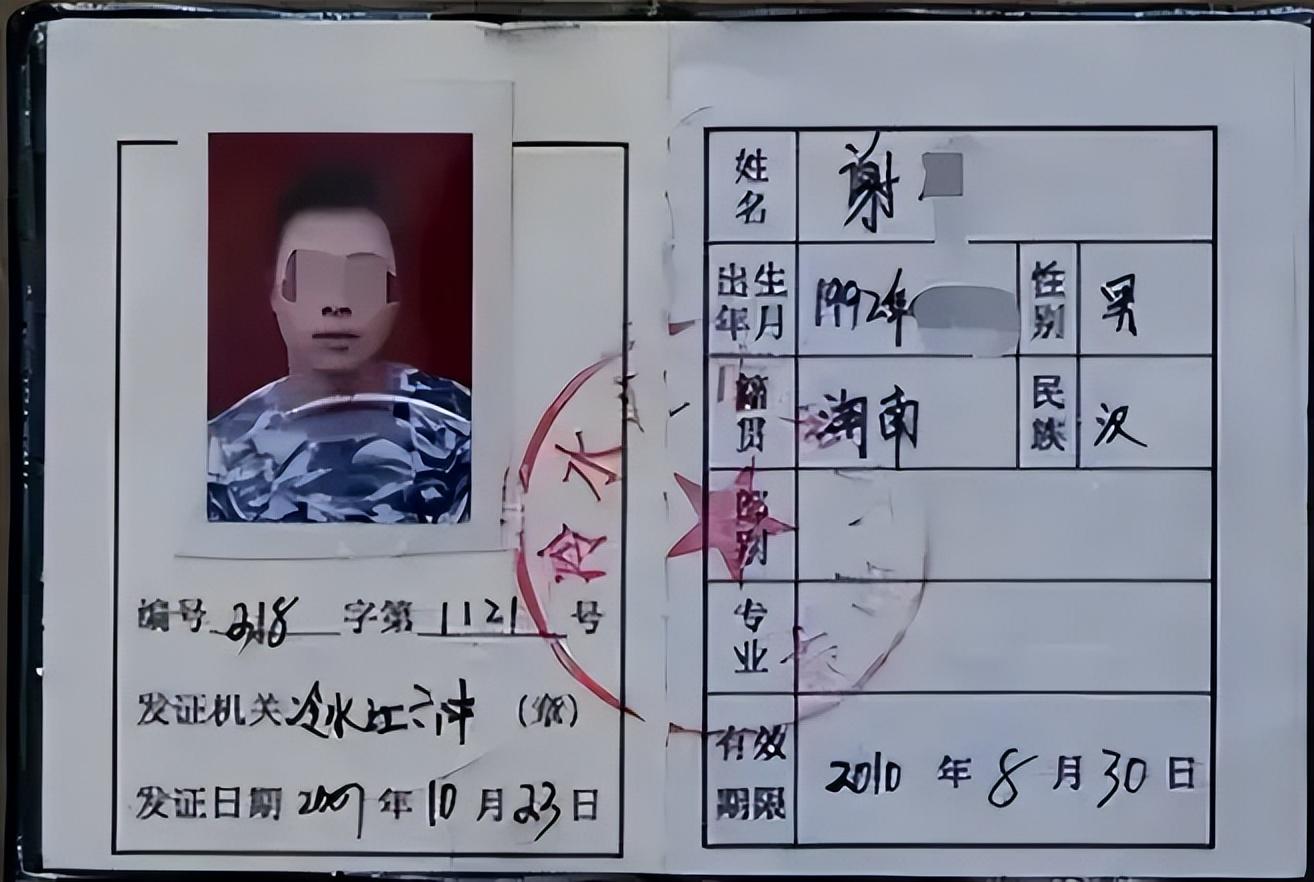 编号 218 字第 1121 号
发证机关 冷水江六中 (章)
发证日期 2007 年 10 月 23 日
冷水
姓名 谢
出生年月 1992年 性别 男
籍贯 湖南 民族 汉
班别
专业
有效期限 2010 年 8 月 30 日